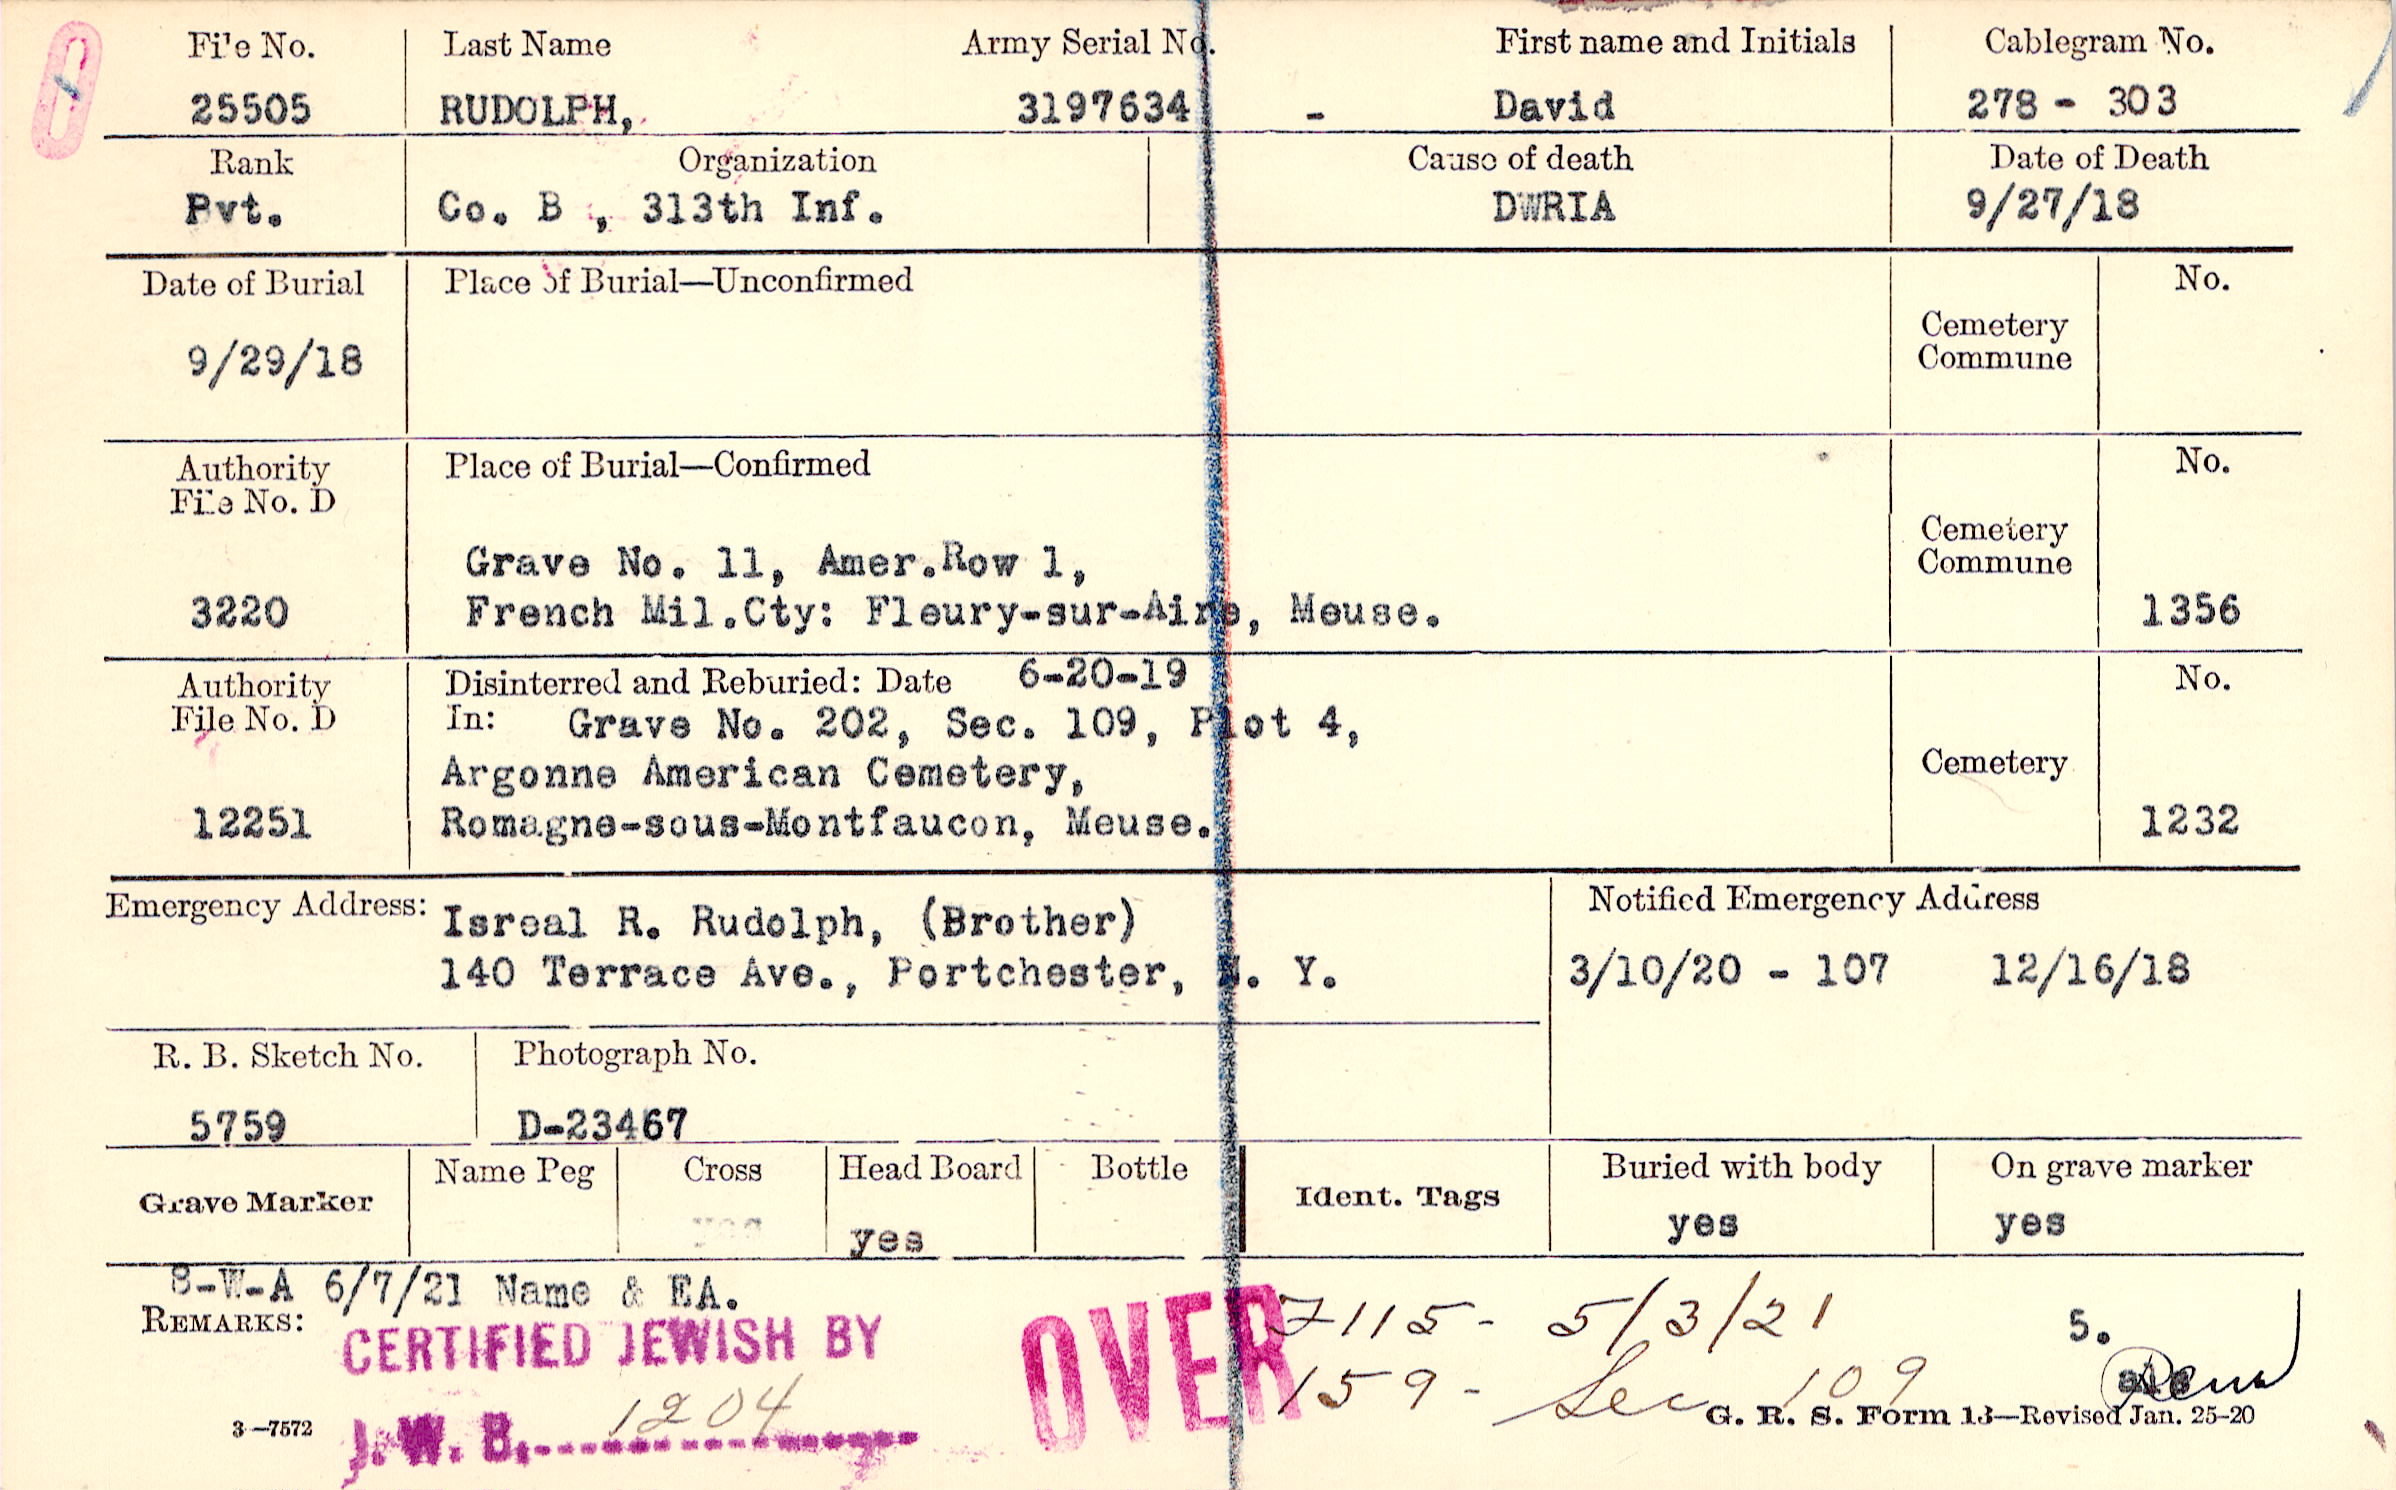 File No. Last Name Army Serial No. First name and Initials Cablegram No.
25505 RUDOLPH, 3197634 - David 278 - 303
Rank Organization Cause of death Date of Death
Pvt. Co. B , 313th Inf. DWRIA 9/27/18
Date of Burial Place of Burial—Unconfirmed No.
Cemetery
Commune
9/29/18
Authority Place of Burial—Confirmed No.
File No. D
Cemetery
Commune
Grave No. 11, Amer.Row 1,
3220 French Mil.Cty: Fleury-sur-Aire, Meuse. 1356
Authority Disinterred and Reburied: Date 6-20-19 No.
File No. D In: Grave No. 202, Sec. 109, Plot 4,
Argonne American Cemetery, Cemetery
12251 Romagne-sous-Montfaucon, Meuse. 1232
Emergency Address: Isreal R. Rudolph, (Brother) Notified Emergency Address
140 Terrace Ave., Portchester, N. Y. 3/10/20 - 107 12/16/18
R. B. Sketch No. Photograph No.
5759 D-23467
Grave Marker Name Peg Cross Head Board Bottle Ident. Tags Buried with body On grave marker
yes yes yes yes
8-W-A 6/7/21 Name & EA.
REMARKS:
CERTIFIED JEWISH BY
J. W. B. 1204
OVER
7115 - 5/3/21 5.
159 - Sec 109
3—7572 G. R. S. Form 13—Revised Jan. 25-20